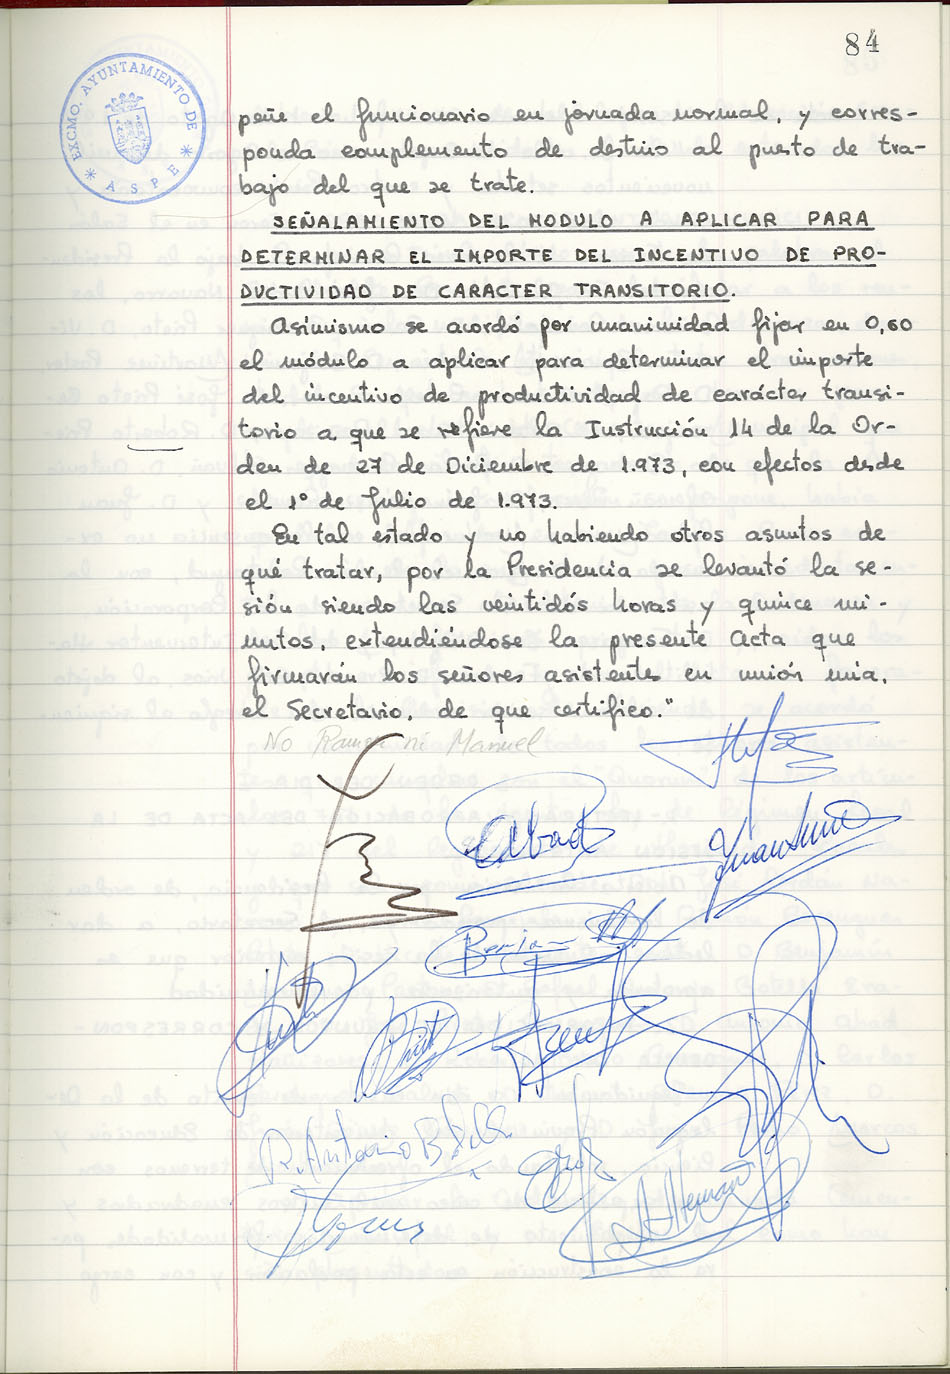 84
EXCMO. AYUNTAMIENTO DE
* ASPE *
peñe el funcionario en jornada normal, y corres-
ponda complemento de destino al puesto de tra-
bajo del que se trate.
SEÑALAMIENTO DEL MODULO A APLICAR PARA
DETERMINAR EL IMPORTE DEL INCENTIVO DE PRO-
DUCTIVIDAD DE CARACTER TRANSITORIO.
Asimismo se acordó por unanimidad fijar en 0,60
el módulo a aplicar para determinar el importe
del incentivo de productividad de carácter transi-
torio a que se refiere la Instrucción 14 de la Or-
den de 27 de Diciembre de 1.973, con efectos desde
el 1º de Julio de 1.973.
En tal estado y no habiendo otros asuntos de
qué tratar, por la Presidencia se levantó la se-
sión siendo las veintidós horas y quince mi-
nutos, extendiéndose la presente Acta que
firmarán los señores asistentes en unión mia,
el Secretario, de que certifico."
No Ramon ni Manuel
R. Antonio